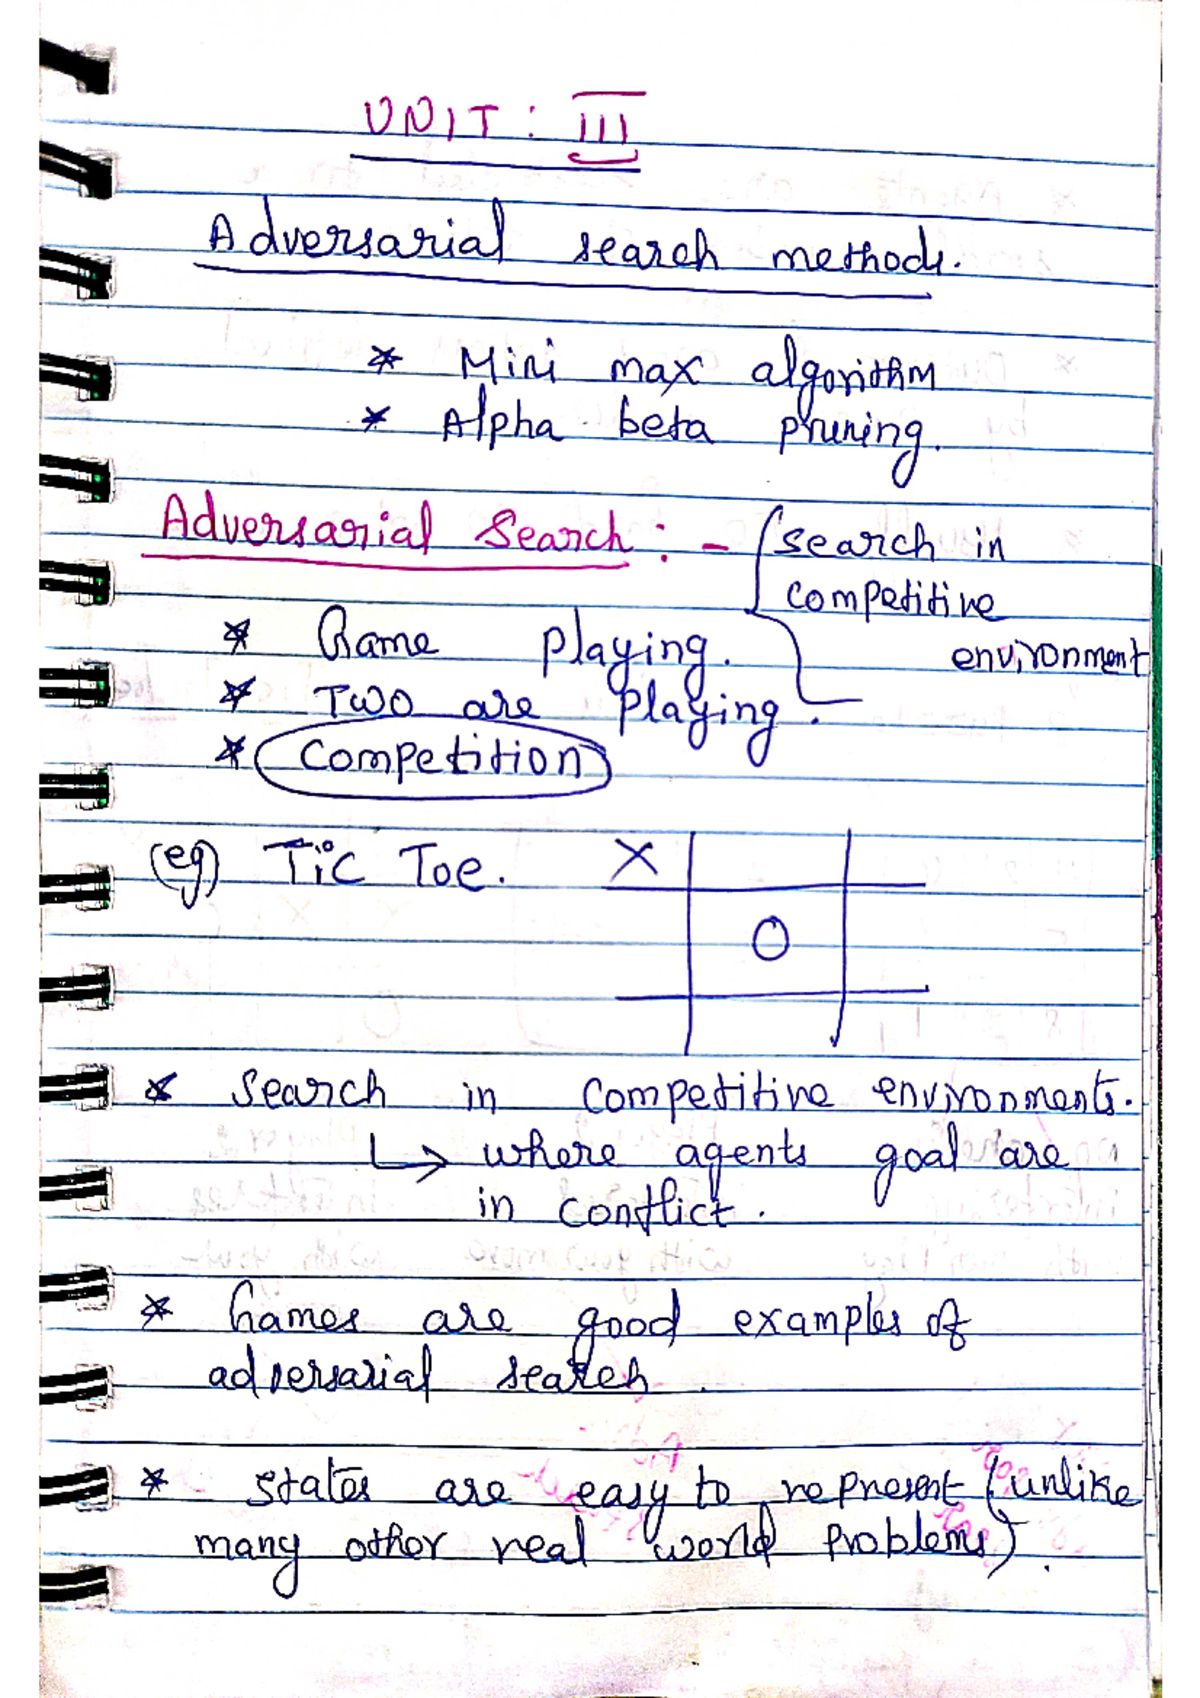 UNIT : III
Adversarial search methods.
* Mini max algorithm
* Alpha beta pruning.
Adversarial Search : - search in
competitive
environment
* Game playing.
* Two are playing.
* Competition
(eg) Tic Toe. X
O
* Search in competitive environments.
↳ where agents goal are
in conflict.
* Games are good examples of
adversarial search.
* States are easy to represent (unlike
many other real world problems).